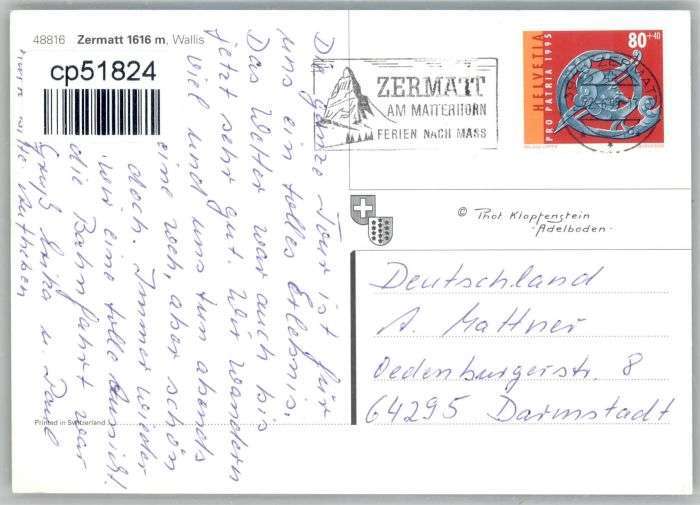 48816 Zermatt 1616 m, Wallis
cp51824
Die ganze Tour ist für
uns ein tolles Erlebnis.
Das Wetter war auch bis
jetzt sehr gut. Wir wandern
viel und uns tun abends
eine weh, aber schön
doch. Immer wieder
wir eine tolle Aussicht.
die Bahnfahrt war
Gruß Erika u. Paul
bitte aufheben
Printed in Switzerland
ZERMATT
AM MATTERHORN
FERIEN NACH MASS
HELVETIA
PRO PATRIA 1995
80+40
© Phot. Klopfenstein
- Adelboden -
Deutschland
A. Mattner
Oedenburgerstr. 8
64295 Darmstadt